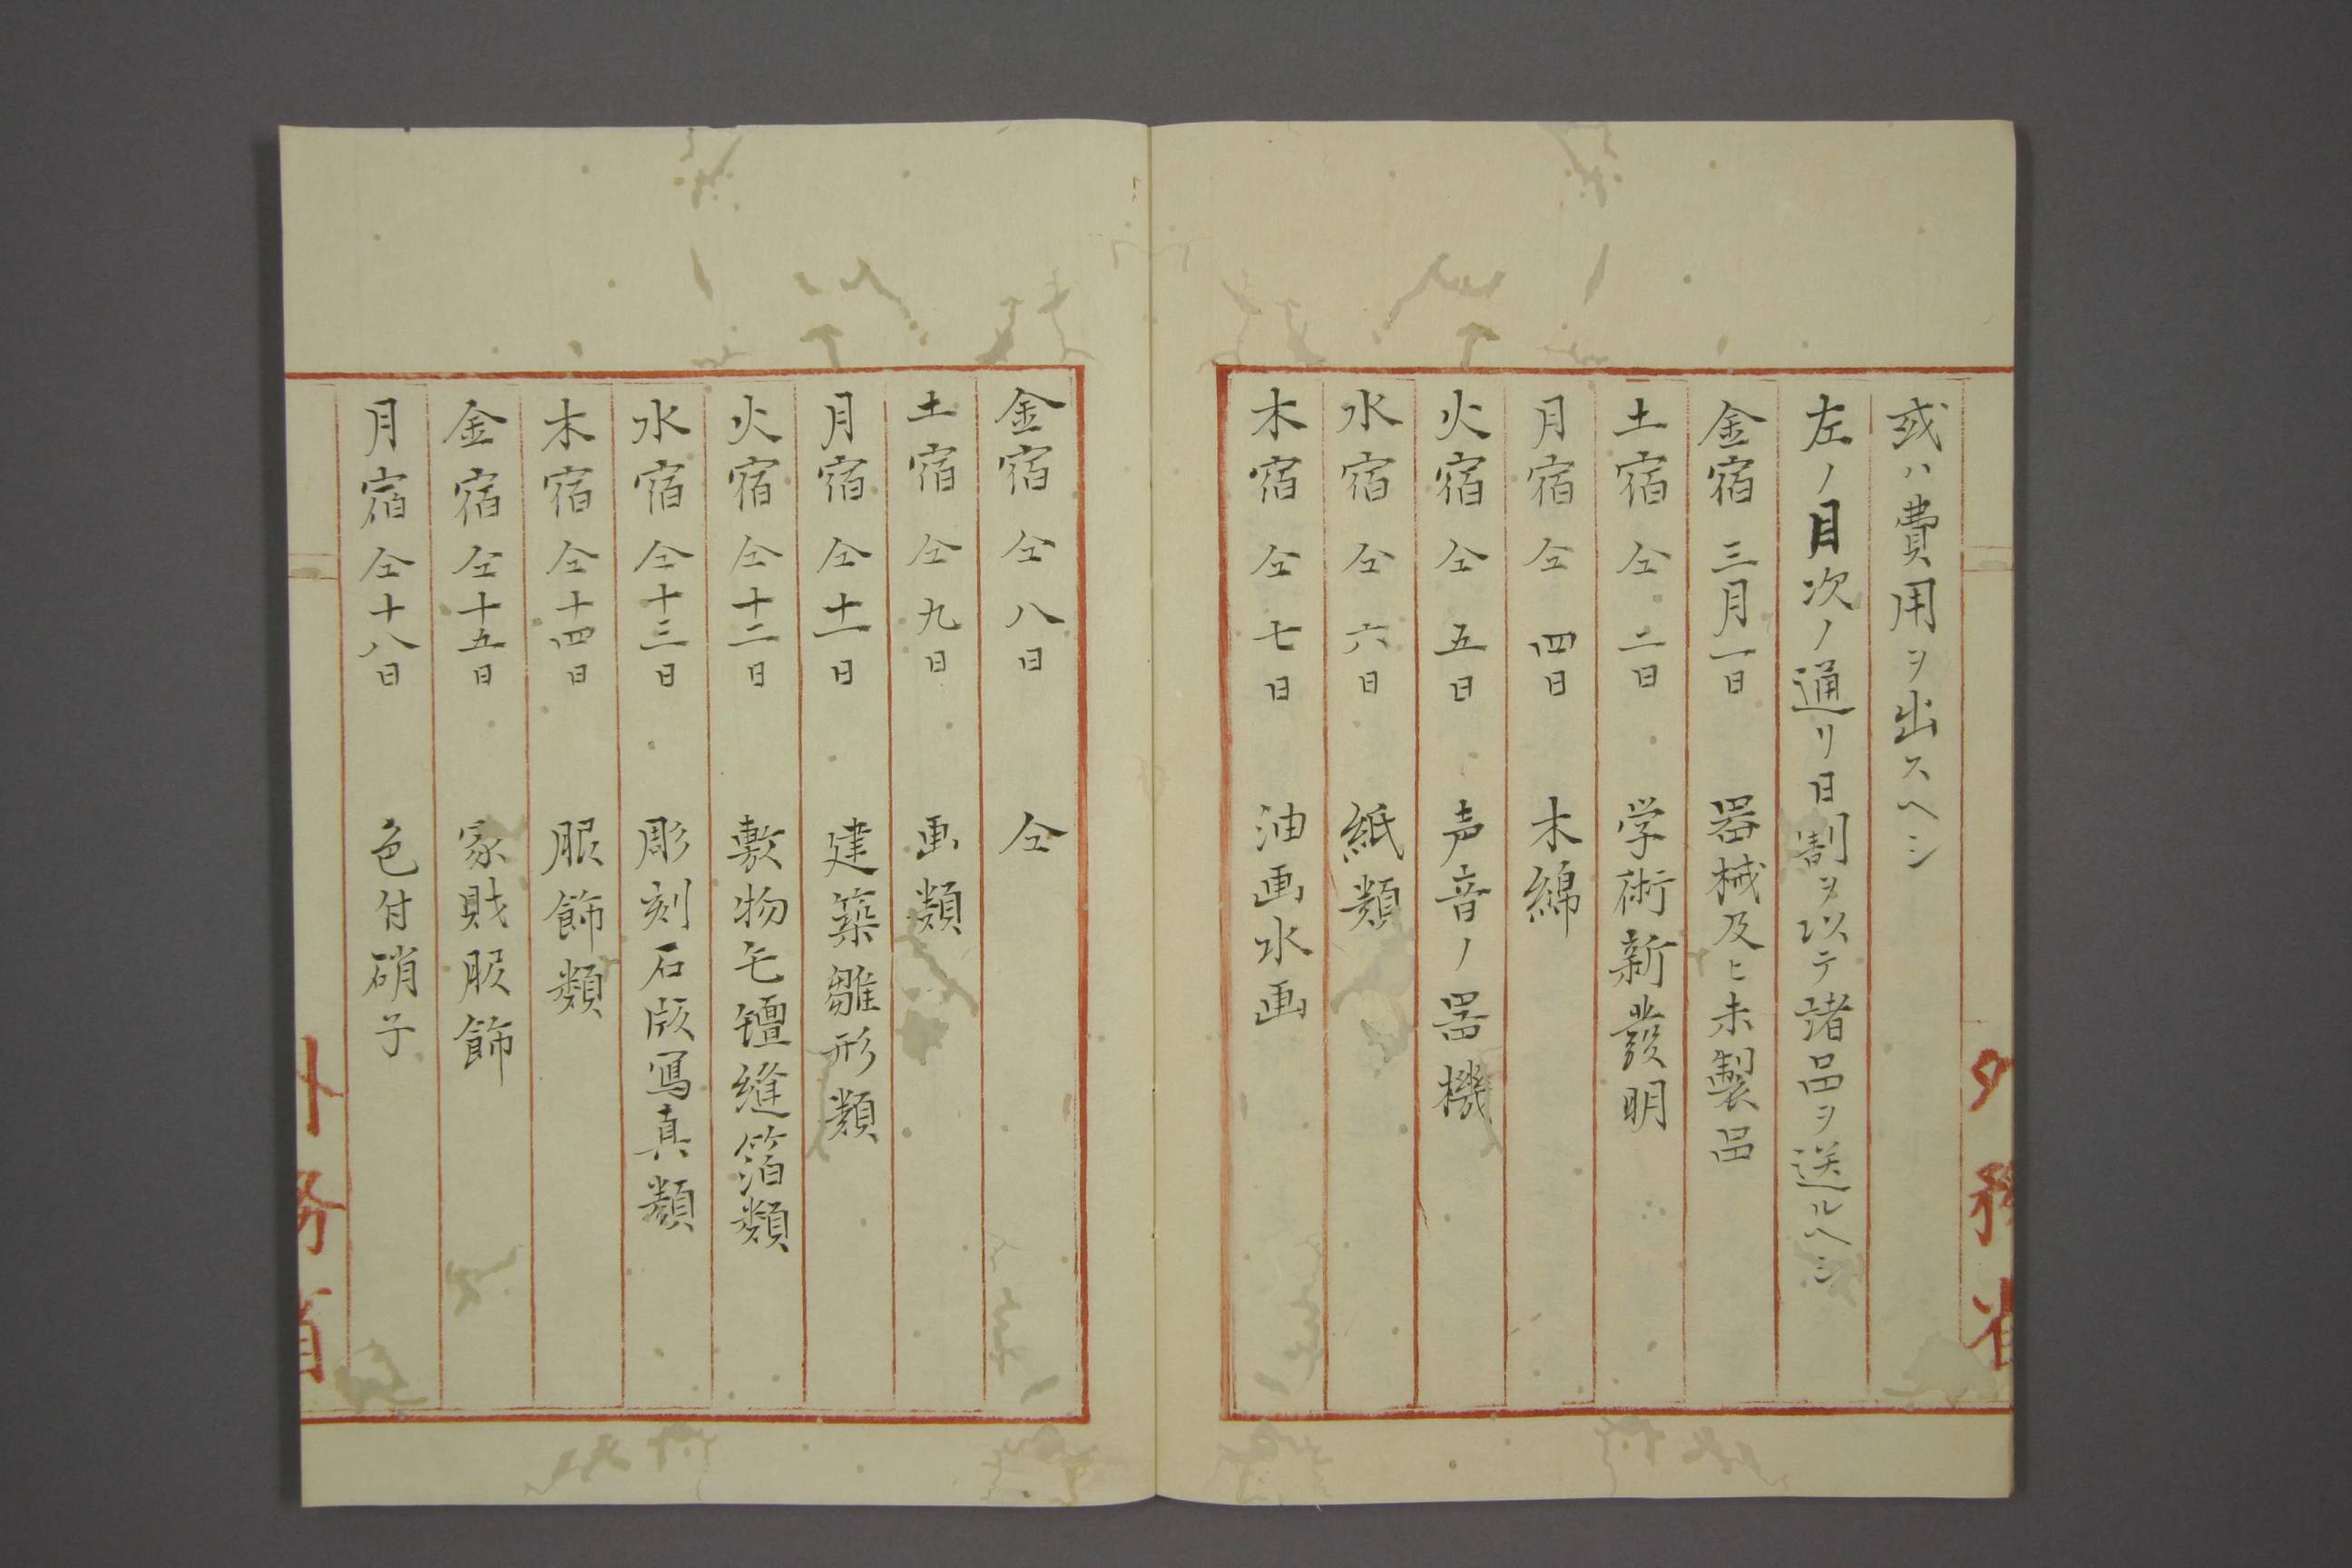 或ハ費用ヲ出スヘシ
左ノ目次ノ通リ日割ヲ以テ諸品ヲ送ルヘシ
金宿 三月一日 器械及ヒ未製品
土宿 仝 二日 学術新發明
月宿 仝 四日 木綿
火宿 仝 五日 声音ノ器機
水宿 仝 六日 紙類
木宿 仝 七日 油画水画
外務省
金宿 仝 八日 仝
土宿 仝 九日 画類
月宿 仝十一日 建築雛形類
火宿 仝十二日 敷物毛氈縫箔類
水宿 仝十三日 彫刻石版寫真類
木宿 仝十四日 服飾類
金宿 仝十五日 家財服飾
月宿 仝十八日 色付硝子
外務省